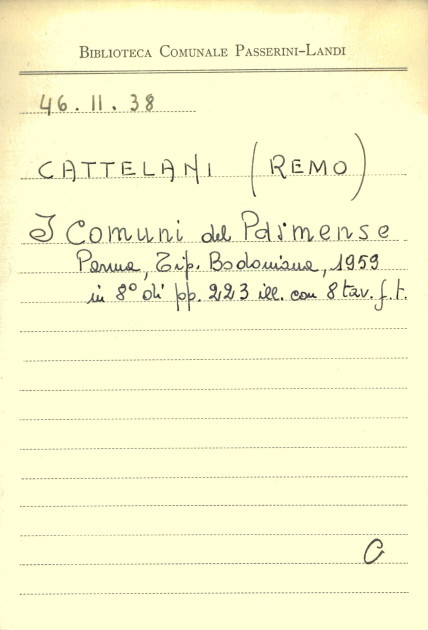 BIBLIOTECA COMUNALE PASSERINI-LANDI
46.II.38
CATTELANI (REMO)
I Comuni del Parmense
Parma, Tip. Bodoniana, 1959
in 8° di pp. 223 ill. con 8 tav. f. t.
C